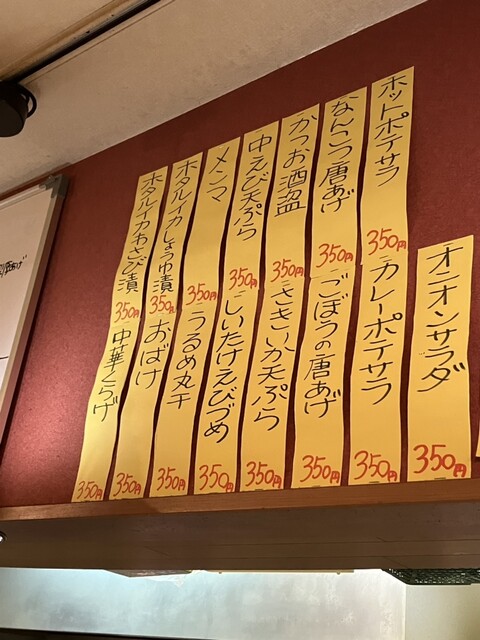 ホットポテサラ
350円
なんこつ唐あげ
350円
かつお酒盗
350円
中えび天ぷら
350円
メンマ
350円
ホタルイカしょうゆ漬
350円
ホタルイカわさび漬
350円
オニオンサラダ
350円
カレーポテサラ
350円
ごぼうの唐あげ
350円
さきいか天ぷら
350円
しいたけえびづめ
350円
うるめ丸干
350円
おばけ
350円
中華くらげ
350円